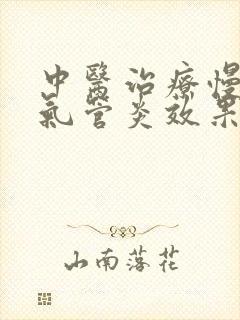 中醫治療慢
氣管炎效果
山南落花